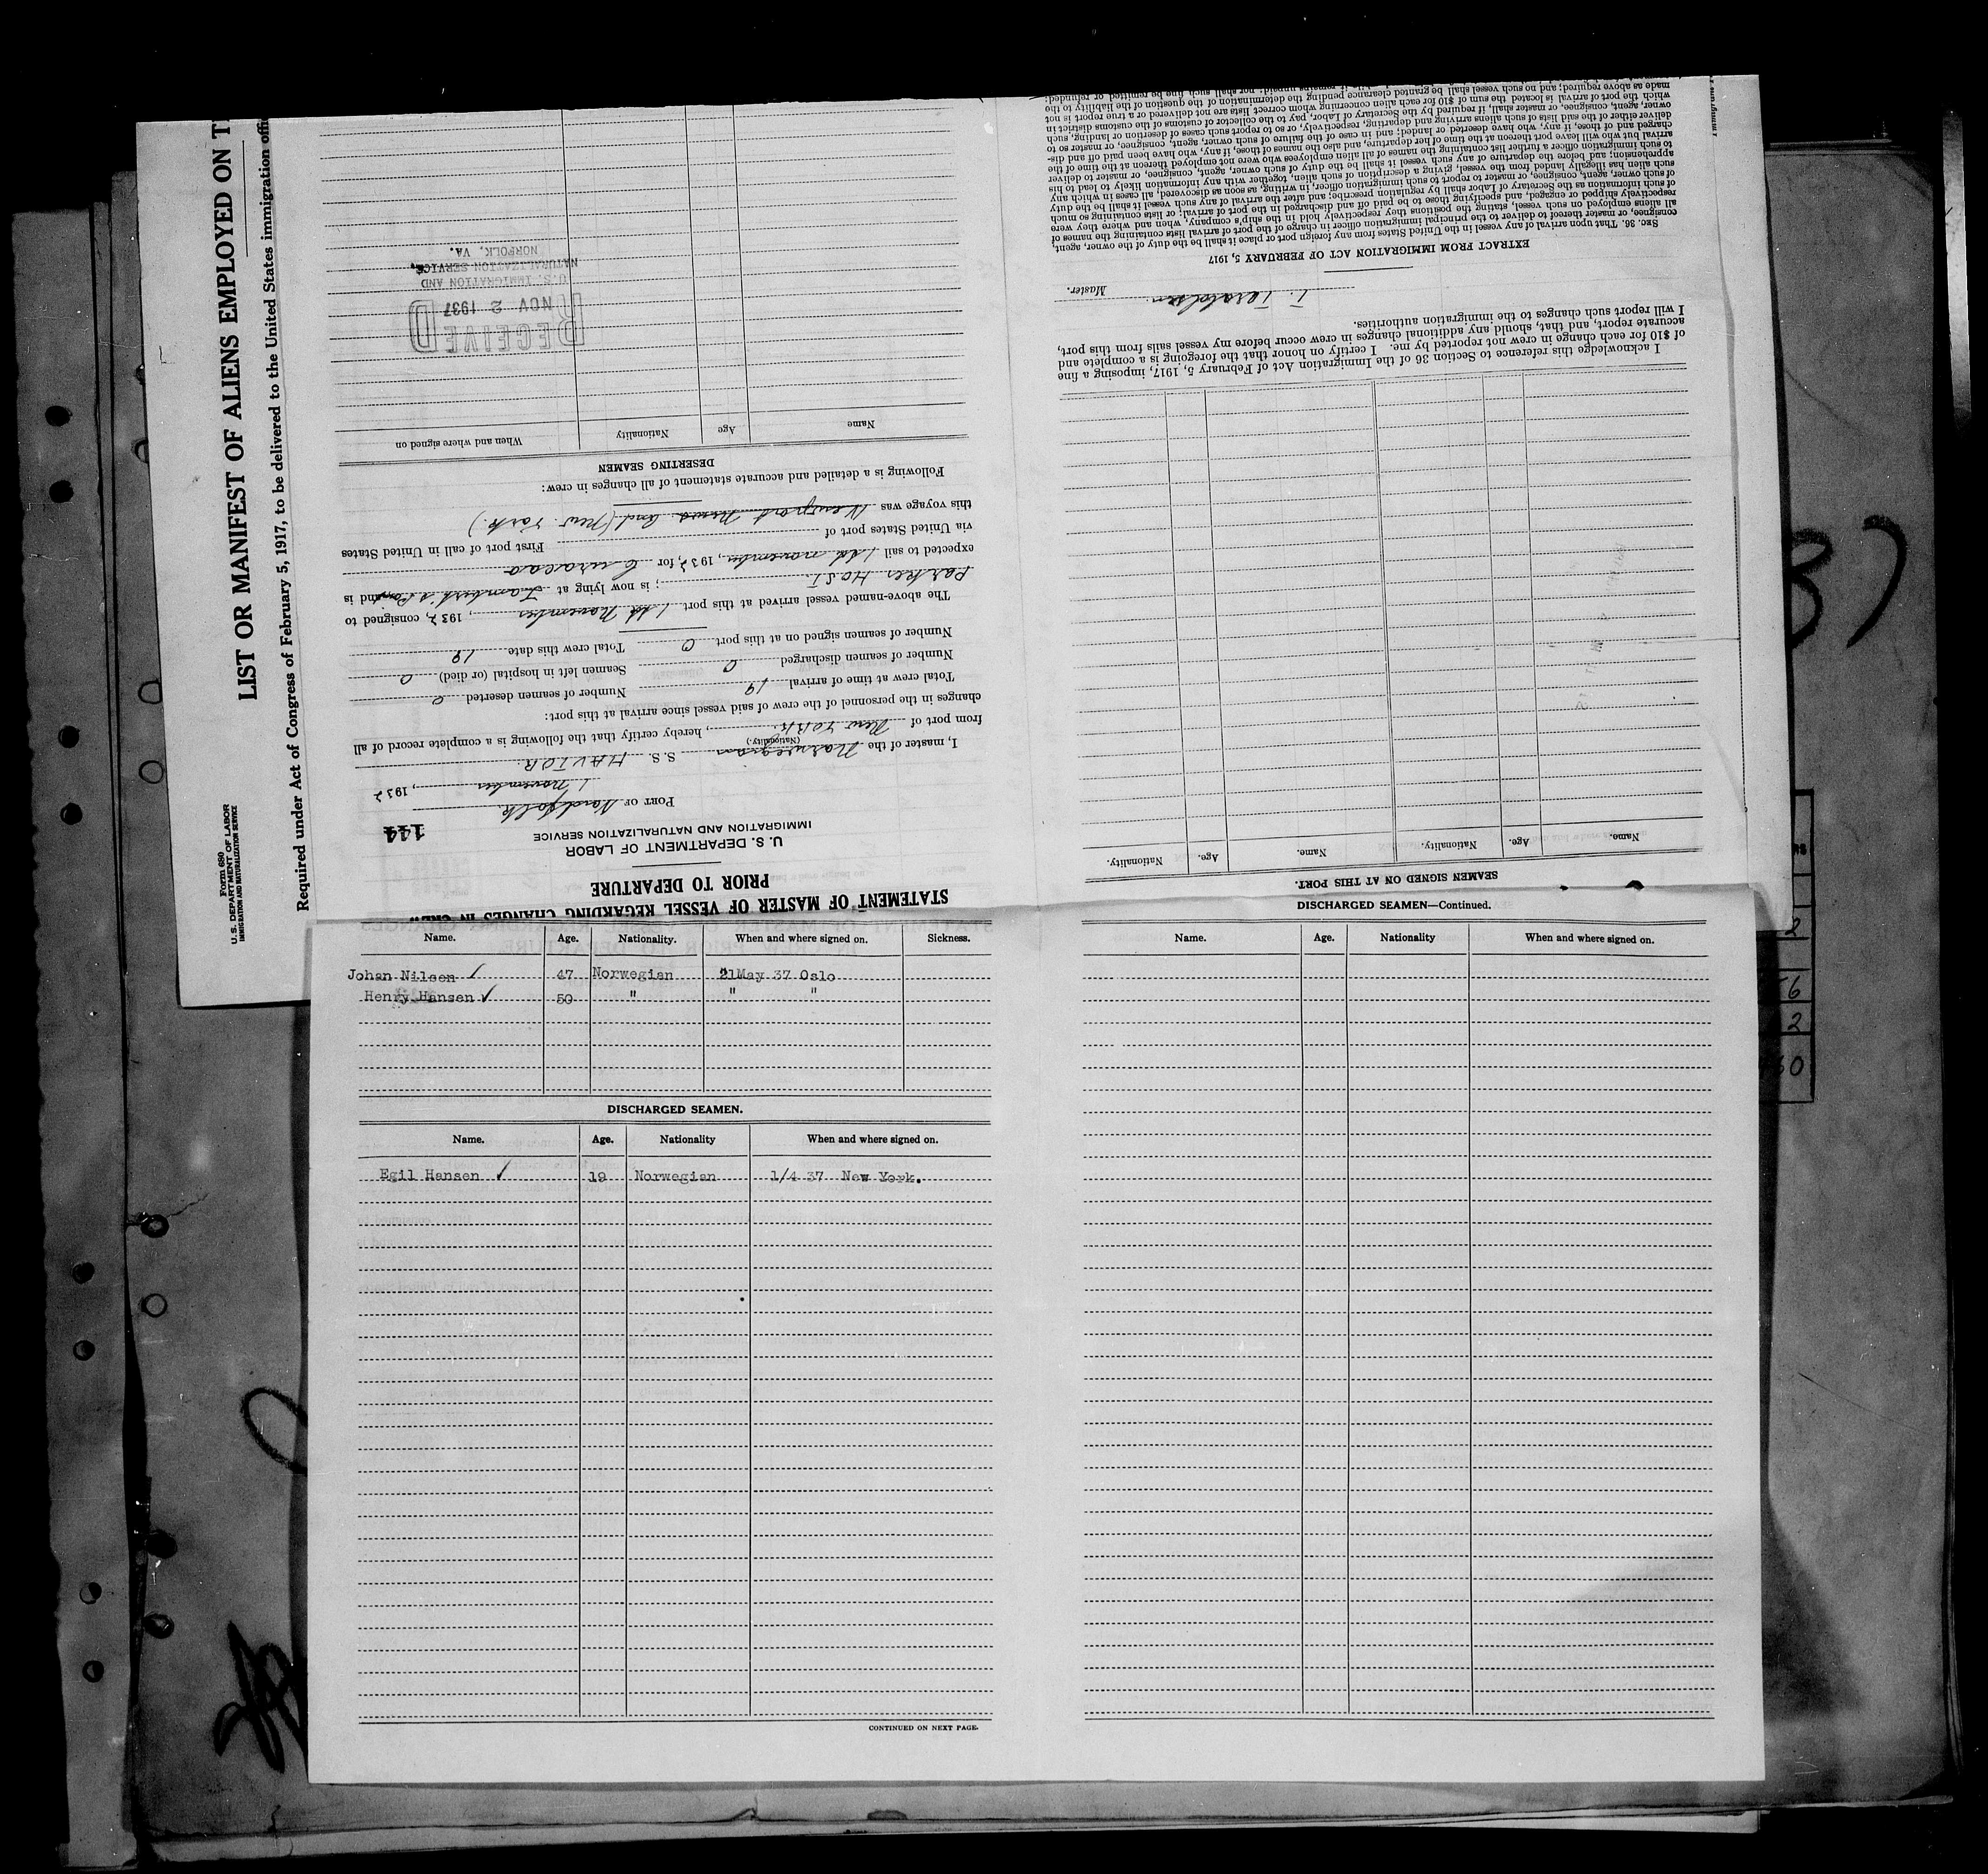 Form 680
U. S. DEPARTMENT OF LABOR
IMMIGRATION AND NATURALIZATION SERVICE
LIST OR MANIFEST OF ALIENS EMPLOYED ON T
Required under Act of Congress of February 5, 1917, to be delivered to the United States immigration offi
STATEMENT OF MASTER OF VESSEL REGARDING CHANGES IN
PRIOR TO DEPARTURE
U. S. DEPARTMENT OF LABOR
IMMIGRATION AND NATURALIZATION SERVICE
144
PORT OF Nordfolk.
1 November, 1937
I, master of the Norwegian S. S. HAVTOR.
(Nationality.)
from port of New York, hereby certify that the following is a complete record of all
changes in the personnel of the crew of said vessel since arrival at this port:
Total crew at time of arrival 19 Number of seamen deserted 0
Number of seamen discharged 0 Seamen left in hospital (or died) 0
Number of seamen signed on at this port 0 Total crew this date 19
The above-named vessel arrived at this port 1st November, 1937, consigned to
Parker HOST.; is now lying at Lambert's Point and is
expected to sail 1st november, 1937, for Curacao
via United States port of First port of call in United States
this voyage was Newport News and (New York.)
Following is a detailed and accurate statement of all changes in crew:
DESERTING SEAMEN
Name Age Nationality When and where signed on
RECEIVED
NOV 2 1937
U. S. IMMIGRATION AND
NATURALIZATION SERVICE,
NORFOLK, VA.
SEAMEN SIGNED ON AT THIS PORT.
Name. Age. Nationality. Name. Age. Nationality.
I acknowledge this reference to Section 36 of the Immigration Act of February 5, 1917, imposing a fine
of $10 for each change in crew not reported by me. I certify on honor that the foregoing is a complete and
accurate report, and that, should any additional changes in crew occur before my vessel sails from this port,
I will report such changes to the immigration authorities.
Master.
EXTRACT FROM IMMIGRATION ACT OF FEBRUARY 5, 1917
SEC. 36. That upon arrival of any vessel in the United States from any foreign port or place it shall be the duty of the owner, agent,
consignee, or master thereof to deliver to the principal immigration officer in charge of the port of arrival lists containing the names of
all aliens employed on such vessel, stating the positions they respectively hold in the ship's company, when and where they were
respectively shipped or engaged, and specifying those to be paid off and discharged in the port of arrival; or lists containing so much
of such information as the Secretary of Labor shall by regulation prescribe; and after the arrival of any such vessel it shall be the duty
of such owner, agent, consignee, or master to report to such immigration officer, in writing, as soon as discovered, all cases in which any
such alien has illegally landed from the vessel, giving a description of such alien, together with any information likely to lead to his
apprehension; and before the departure of any such vessel it shall be the duty of such owner, agent, consignee, or master to deliver
to such immigration officer a further list containing the names of all alien employees who were not employed thereon at the time of the
arrival but who will leave port thereon at the time of her departure, and also the names of those, if any, who have been paid off and dis-
charged and of those, if any, who have deserted or landed; and in case of the failure of such owner, agent, consignee, or master so to
deliver either of the said lists of such aliens arriving and departing, respectively, or so to report such cases of desertion or landing, such
owner, agent, consignee, or master, shall, if required by the Secretary of Labor, pay to the collector of customs of the customs district in
which the port of arrival is located the sum of $10 for each alien concerning whom correct lists are not delivered or a true report is not
made as above required; and no such vessel shall be granted clearance pending the determination of the question of the liability to the
Name. Age. Nationality. When and where signed on. Sickness.
Johan Nilsen 47 Norwegian 21May 37 Oslo
Henry Hansen 50 " " "
DISCHARGED SEAMEN.
Name. Age. Nationality When and where signed on.
Egil Hansen 19 Norwegian 1/4 37 New York.
CONTINUED ON NEXT PAGE.
DISCHARGED SEAMEN—Continued.
Name. Age. Nationality When and where signed on.
2
6
2